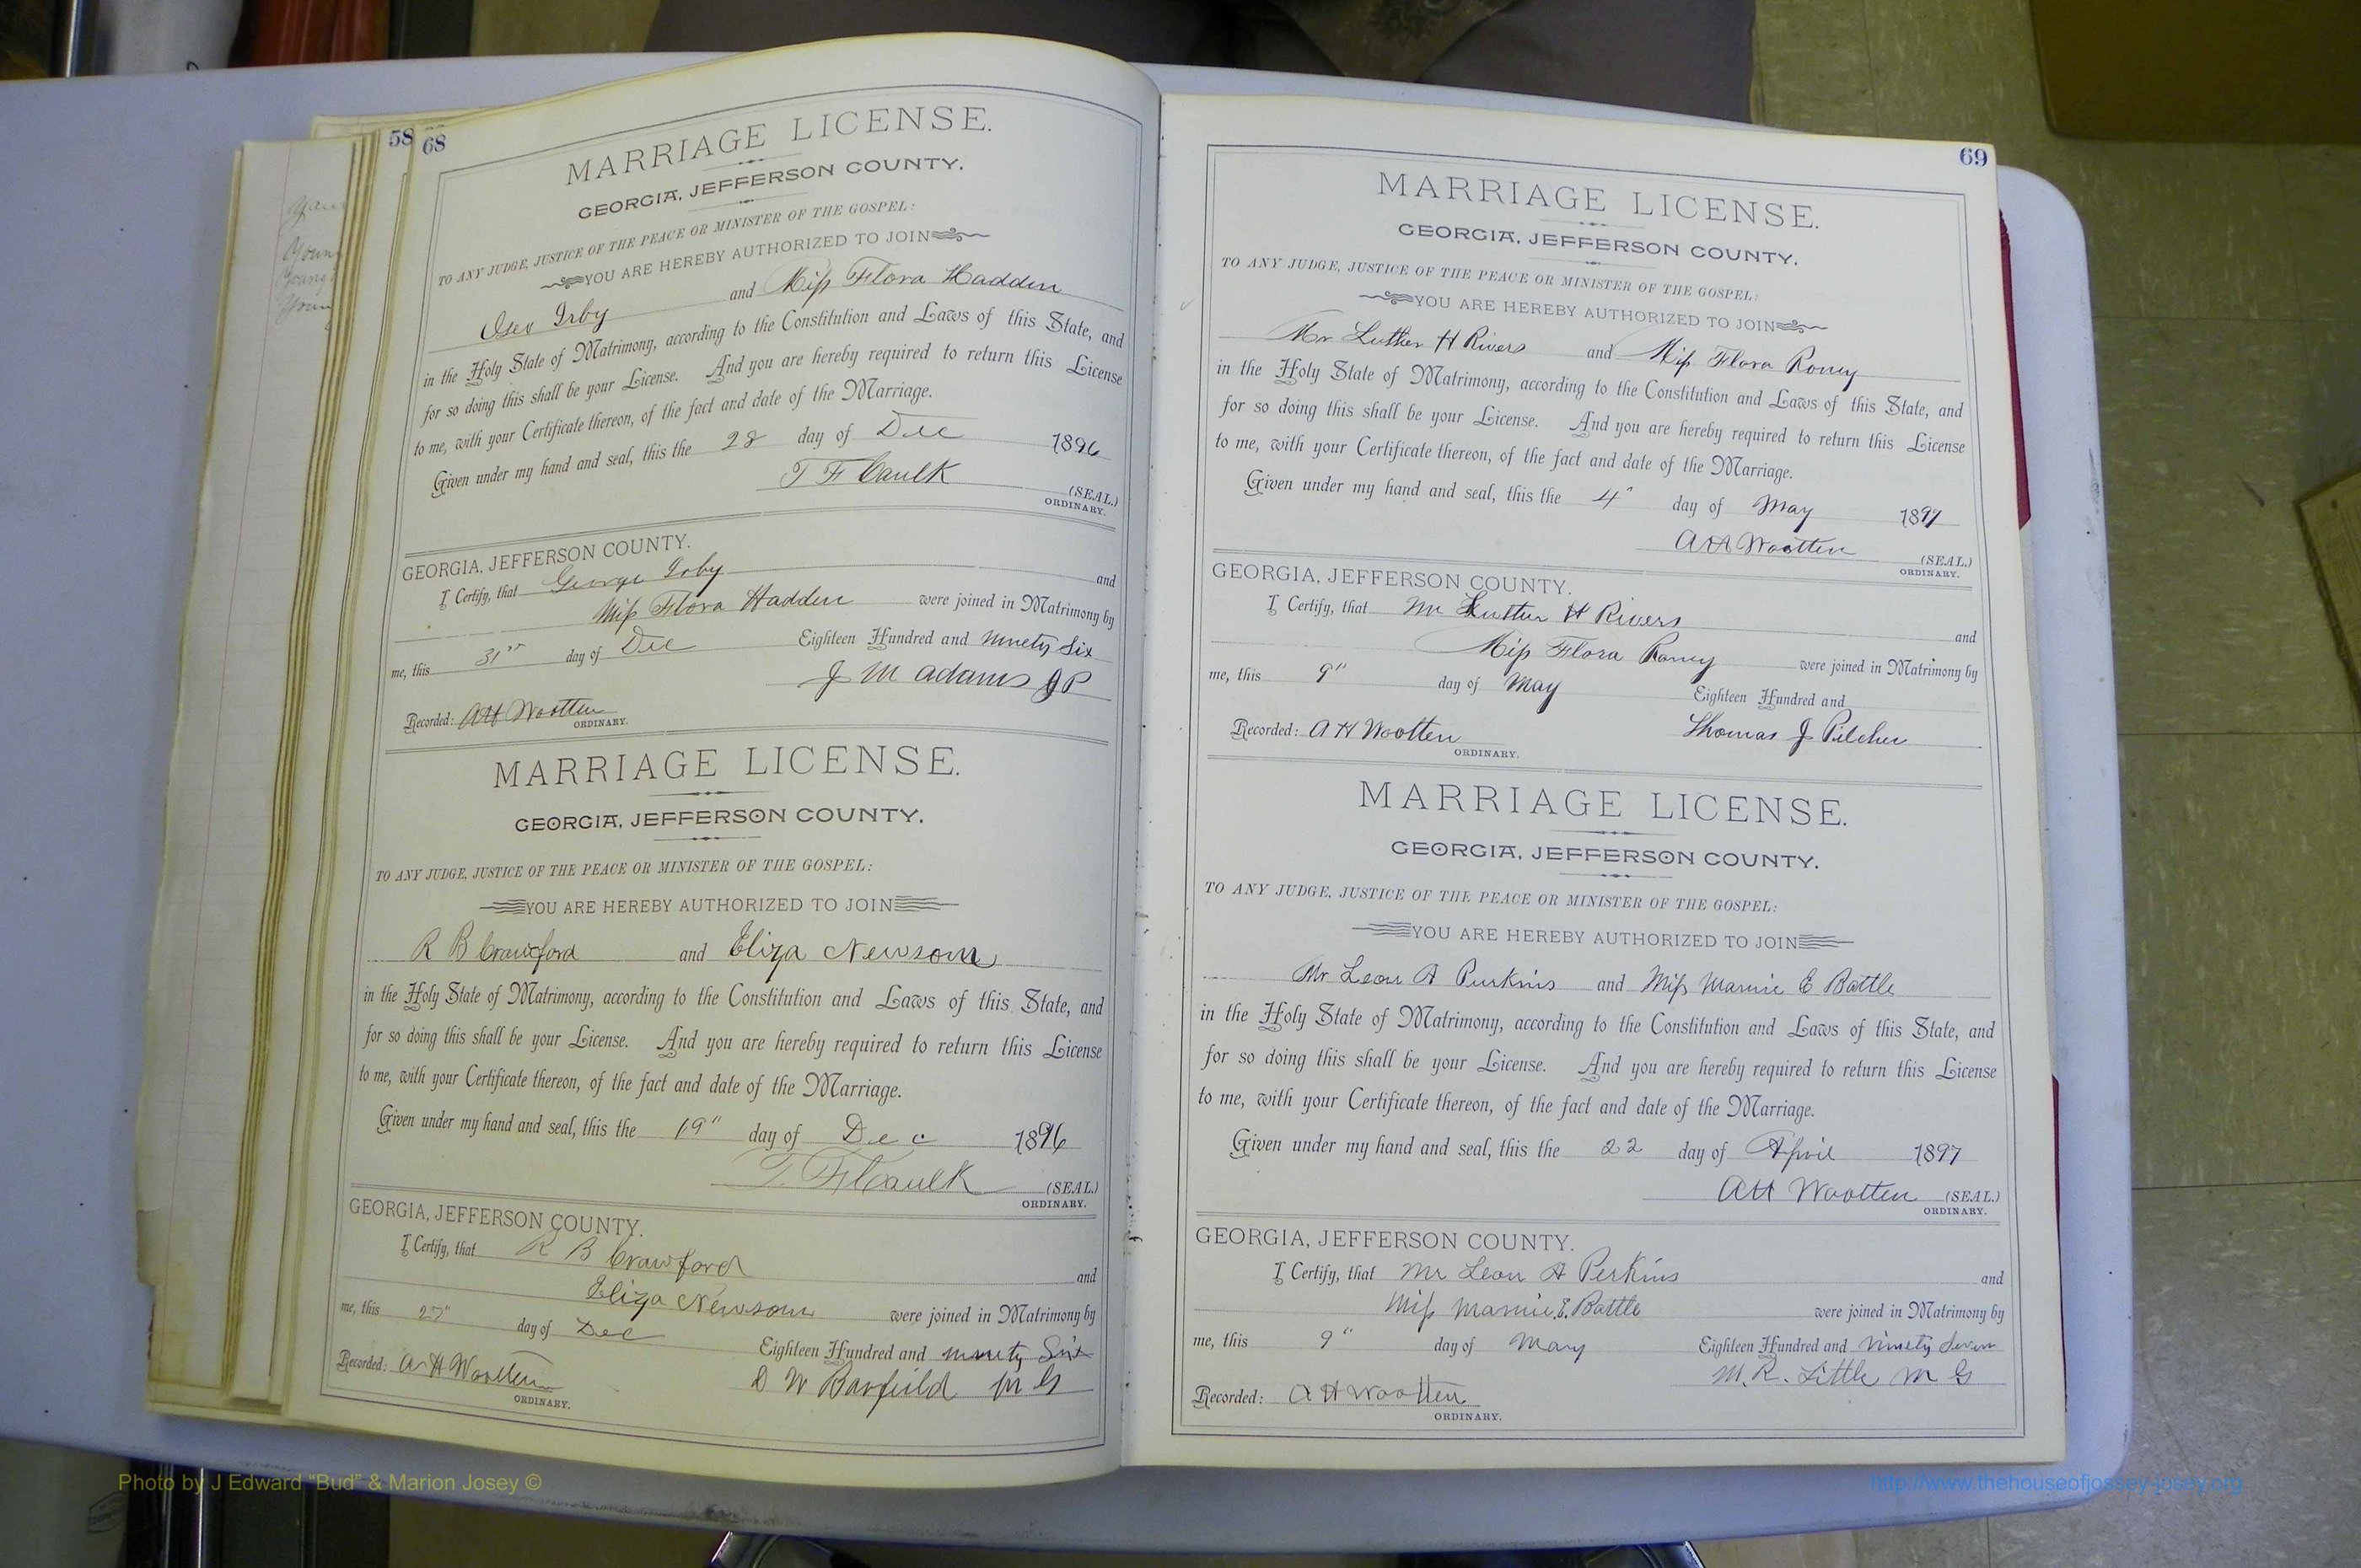 58
68
MARRIAGE LICENSE.
GEORGIA, JEFFERSON COUNTY.
TO ANY JUDGE, JUSTICE OF THE PEACE OR MINISTER OF THE GOSPEL:
YOU ARE HEREBY AUTHORIZED TO JOIN
Geo Irby and Miss Flora Hadden
in the Holy State of Matrimony, according to the Constitution and Laws of this State, and
for so doing this shall be your License. And you are hereby required to return this License
to me, with your Certificate thereon, of the fact and date of the Marriage.
Given under my hand and seal, this the 28 day of Dec 1896
T F Caulk (SEAL.)
ORDINARY.
GEORGIA, JEFFERSON COUNTY.
I Certify, that George Irby and
Miss Flora Hadden were joined in Matrimony by
me, this 31st day of Dec Eighteen Hundred and Ninety Six
J M Adams J P
Recorded: A H Wootten
ORDINARY.
MARRIAGE LICENSE.
GEORGIA, JEFFERSON COUNTY.
TO ANY JUDGE, JUSTICE OF THE PEACE OR MINISTER OF THE GOSPEL:
YOU ARE HEREBY AUTHORIZED TO JOIN
R B Crawford and Eliza Newsom
in the Holy State of Matrimony, according to the Constitution and Laws of this State, and
for so doing this shall be your License. And you are hereby required to return this License
to me, with your Certificate thereon, of the fact and date of the Marriage.
Given under my hand and seal, this the 19" day of Dec 1896
T. F Caulk (SEAL.)
ORDINARY.
GEORGIA, JEFFERSON COUNTY.
I Certify, that R B Crawford and
Eliza Newsom were joined in Matrimony by
me, this 27" day of Dec Eighteen Hundred and ninety Six
D W Barfield M G
Recorded: A H Wootten
ORDINARY.
69
MARRIAGE LICENSE.
GEORGIA, JEFFERSON COUNTY.
TO ANY JUDGE, JUSTICE OF THE PEACE OR MINISTER OF THE GOSPEL:
YOU ARE HEREBY AUTHORIZED TO JOIN
Mr Luther H Rivers and Miss Flora Roney
in the Holy State of Matrimony, according to the Constitution and Laws of this State, and
for so doing this shall be your License. And you are hereby required to return this License
to me, with your Certificate thereon, of the fact and date of the Marriage.
Given under my hand and seal, this the 4" day of May 1897
A H Wootten (SEAL.)
ORDINARY.
GEORGIA, JEFFERSON COUNTY.
I Certify, that Mr Luther H Rivers and
Miss Flora Roney were joined in Matrimony by
me, this 9" day of May Eighteen Hundred and
Thomas J Pilcher
Recorded: A H Wootten
ORDINARY.
MARRIAGE LICENSE.
GEORGIA, JEFFERSON COUNTY.
TO ANY JUDGE, JUSTICE OF THE PEACE OR MINISTER OF THE GOSPEL:
YOU ARE HEREBY AUTHORIZED TO JOIN
Mr Leon A Perkins and Miss Mamie E Battle
in the Holy State of Matrimony, according to the Constitution and Laws of this State, and
for so doing this shall be your License. And you are hereby required to return this License
to me, with your Certificate thereon, of the fact and date of the Marriage.
Given under my hand and seal, this the 22 day of April 1897
A H Wootten (SEAL.)
ORDINARY.
GEORGIA, JEFFERSON COUNTY.
I Certify, that Mr Leon A Perkins and
Miss Mamie E. Battle were joined in Matrimony by
me, this 9" day of May Eighteen Hundred and Ninety Seven
M. R. Little M G
Recorded: A H Wootten
ORDINARY.
Photo by J Edward "Bud" & Marion Josey ©
http://www.thehouseofjossey-josey.org